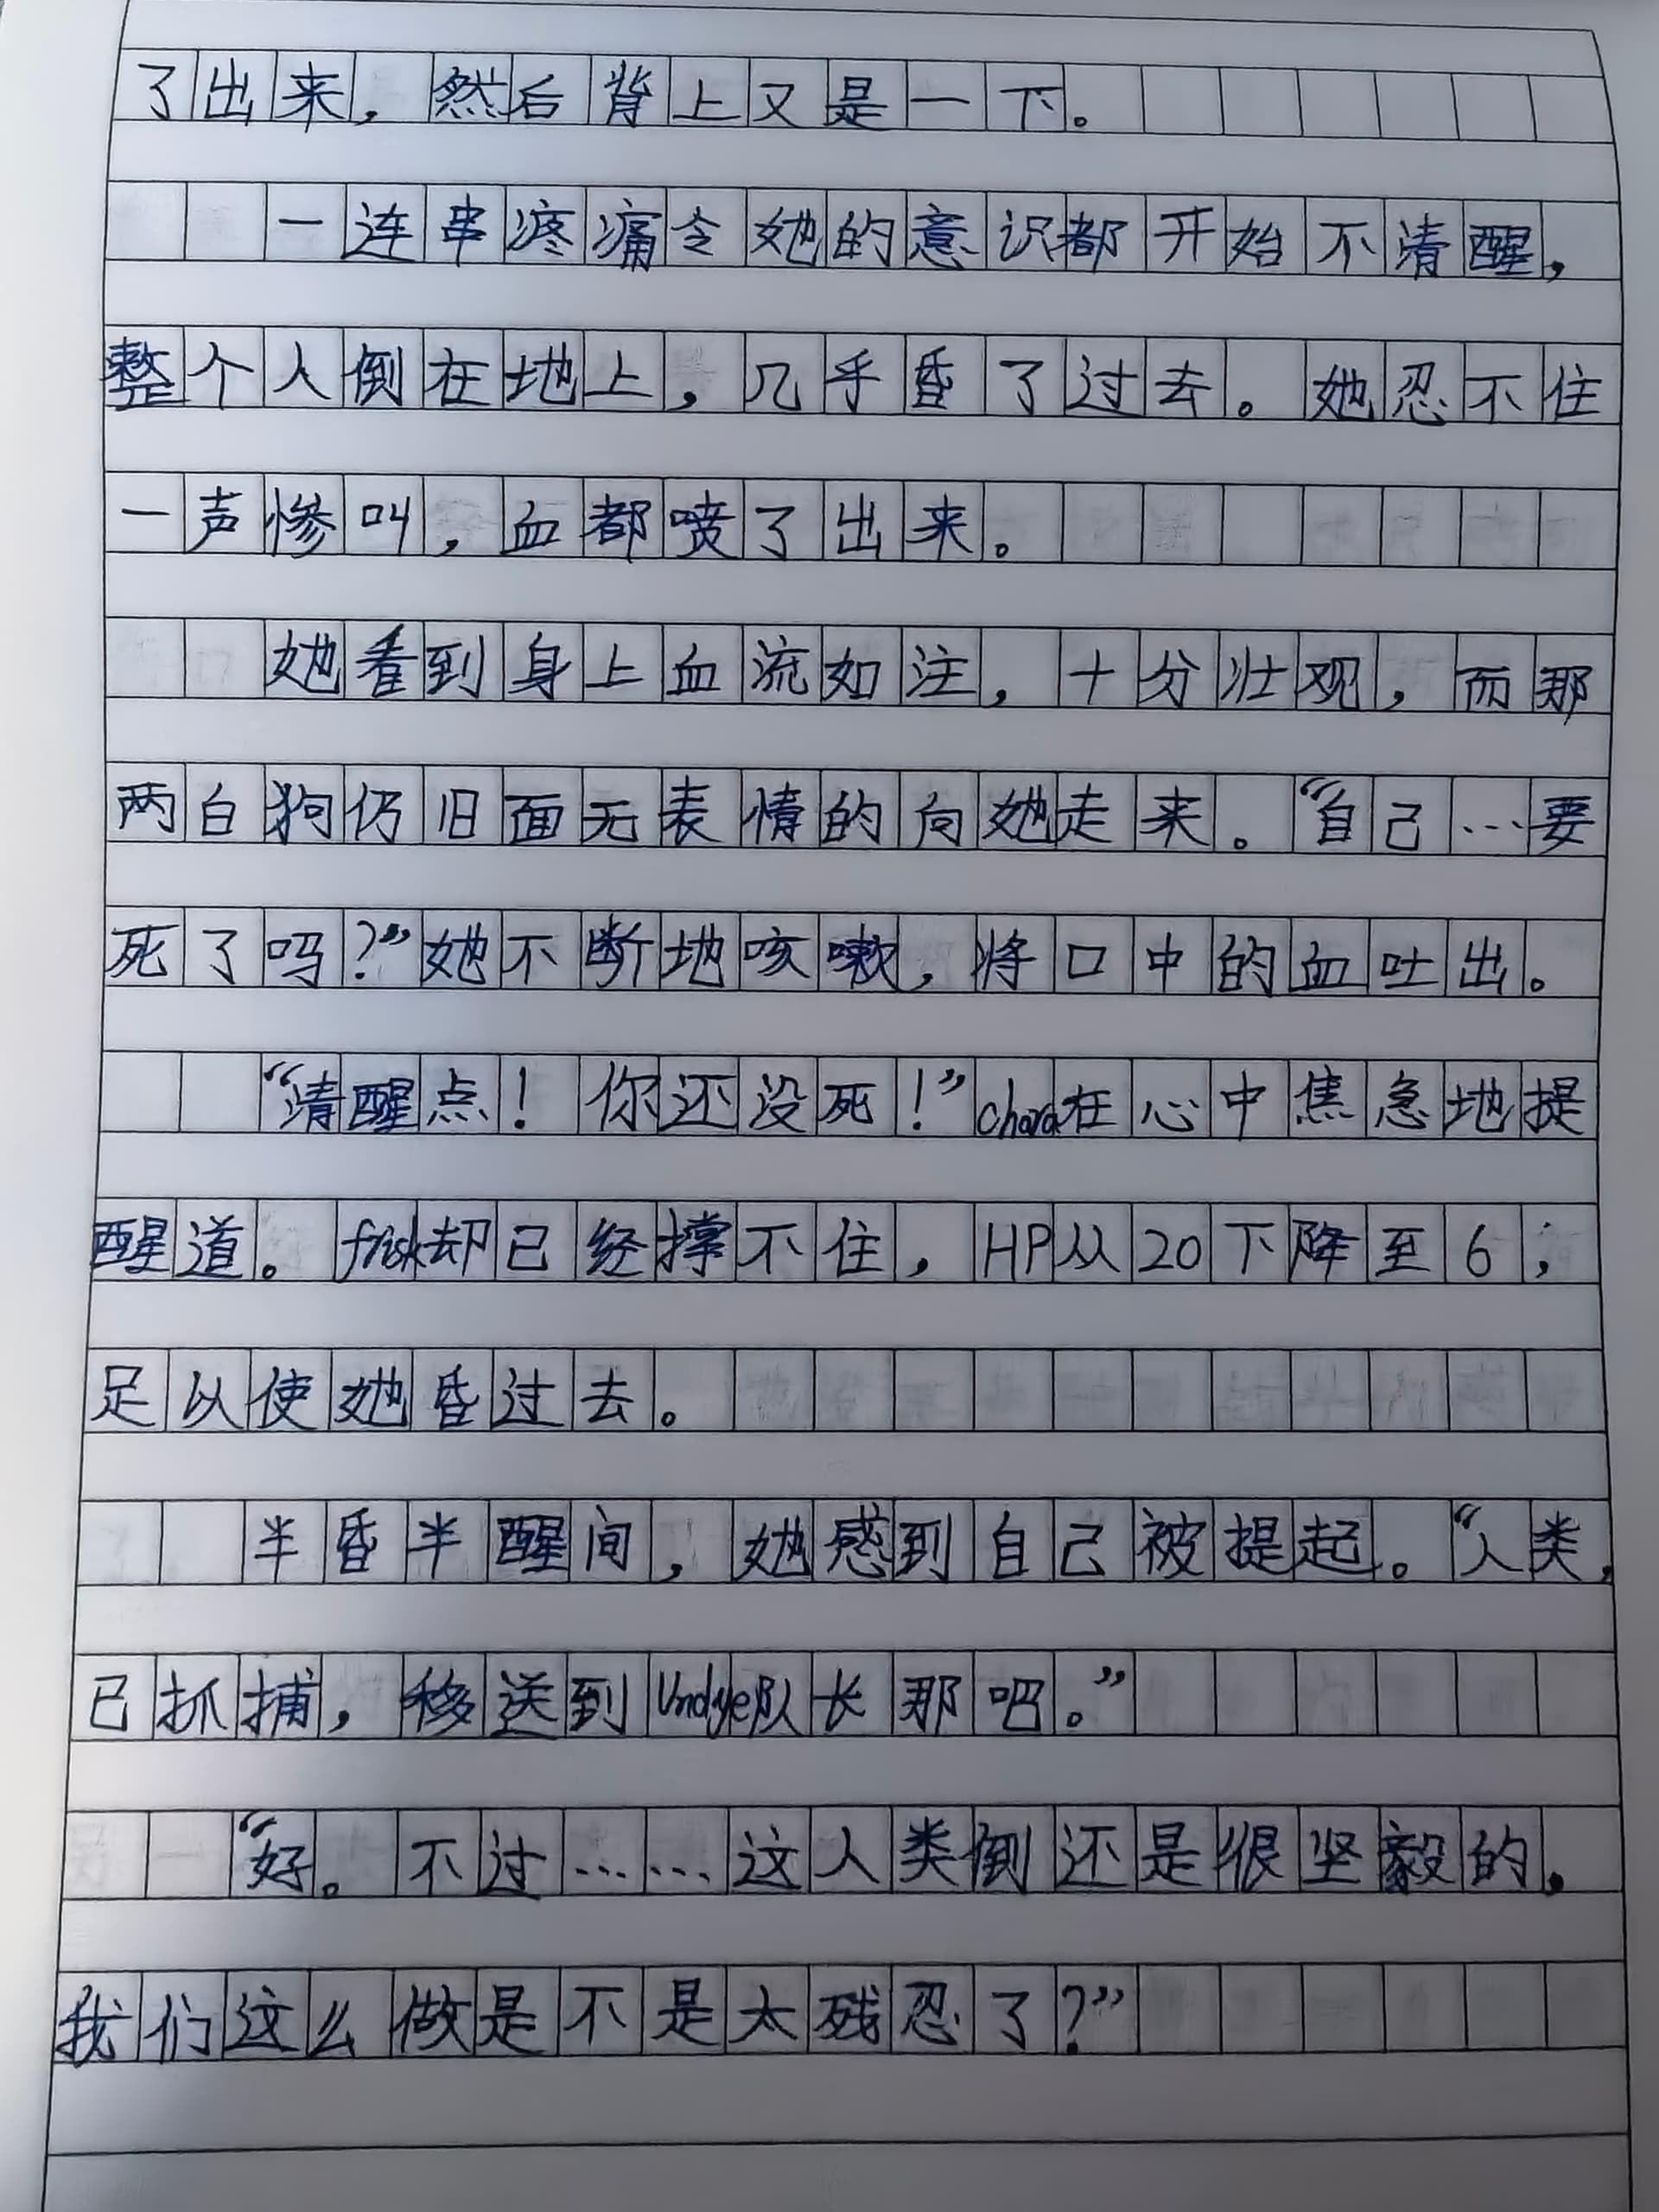 了出来，然后背上又是一下。
一连串疼痛令她的意识都开始不清醒，
整个人倒在地上，几乎昏了过去。她忍不住
一声惨叫，血都喷了出来。
她看到身上血流如注，十分壮观，而那
两白狗仍旧面无表情的向她走来。“自己…要
死了吗？”她不断地咳嗽，将口中的血吐出。
“清醒点！你还没死！”chara在心中焦急地提
醒道。frisk却已经撑不住，HP从20下降至6；
足以使她昏过去。
半昏半醒间，她感到自己被提起。“人类，
已抓捕，移送到Undye队长那吧。”
“好。不过……这人类倒还是很坚毅的。
我们这么做是不是太残忍了？”